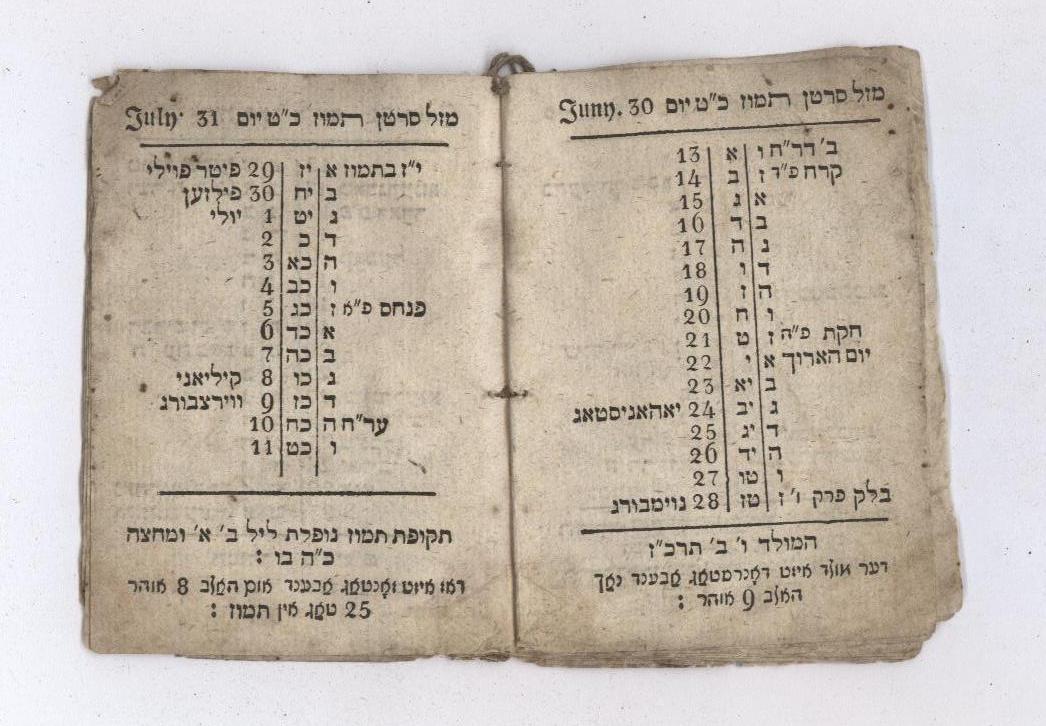 מזל סרטן תמוז כ״ט יום Juny. 30
ב׳ דר״ח ו | א | 13
קרח פ״ד ז | ב | 14
א | ג | 15
ב | ד | 16
ג | ה | 17
ד | ו | 18
ה | ז | 19
ו | ח | 20
חקת פ״ה ז | ט | 21
יום הארוך א | י | 22
ב | יא | 23
ג | יב | 24 יאהאניסטאג
ד | יג | 25
ה | יד | 26
ו | טו | 27
בלק פרק ו׳ ז | טז | 28 נוימבורג
המולד ו׳ ב׳ תרכ״ז
דער מולד איזט דאָנרסטאַג אָבענד נאָך
האַלב 9 אוהר :
מזל סרטן תמוז כ״ט יום July 31
י״ז בתמוז א | יז | 29 פיטר פוילי
ב | יח | 30 פילזען
ג | יט | 1 יולי
ד | כ | 2
ה | כא | 3
ו | כב | 4
פנחס פ״א ז | כג | 5
א | כד | 6
ב | כה | 7
ג | כו | 8 קיליאני
ד | כז | 9 ווירצבורג
ער״ח ה | כח | 10
ו | כט | 11
תקופת תמוז נופלת ליל ב׳ א׳ ומחצה
כ״ה בו :
דאז איזט זאָנטאַג אָבענד אום האַלב 8 אוהר
25 טאָג אין תמוז :